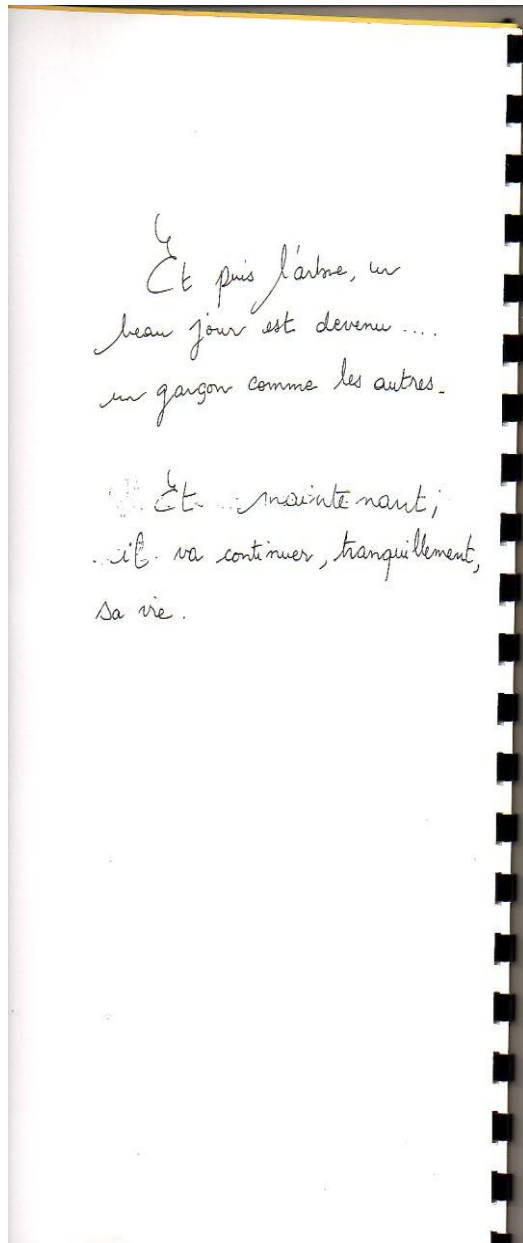 Et puis l'arbre, un
beau jour est devenu ....
un garçon comme les autres.
Et maintenant;
il va continuer, tranquillement,
sa vie.